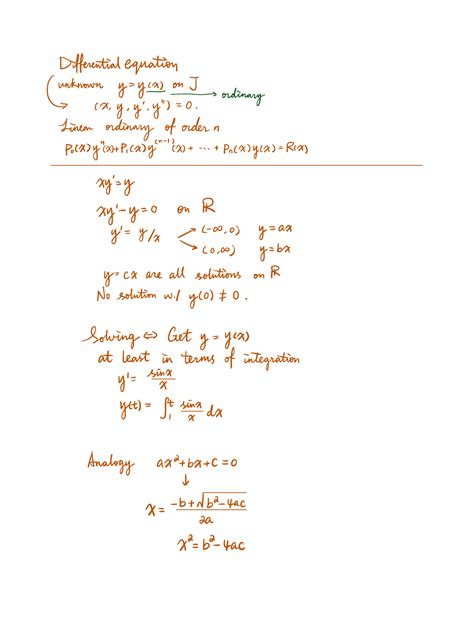 Differential equation
unknown y = y(x) on J → ordinary
(x, y, y', y'') = 0.
Linear ordinary of order n
P₀(x)yⁿ(x)+P₁(x)y⁽ⁿ⁻¹⁾(x)+ ⋯ +Pₙ(x)y(x)=R(x)
xy'=y
xy'-y=0 on ℝ
y'= y/x → (-∞,0) y=ax
→ (0,∞) y=bx
y=cx are all solutions on ℝ
No solution w./ y(0) ≠ 0.
Solving ⇔ Get y = y(x)
at least in terms of integration
y'= sinx/x
y(t) = ∫₁ᵗ sinx/x dx
Analogy ax²+bx+c=0
↓
x = (-b+√(b²-4ac))/2a
x²=b²-4ac